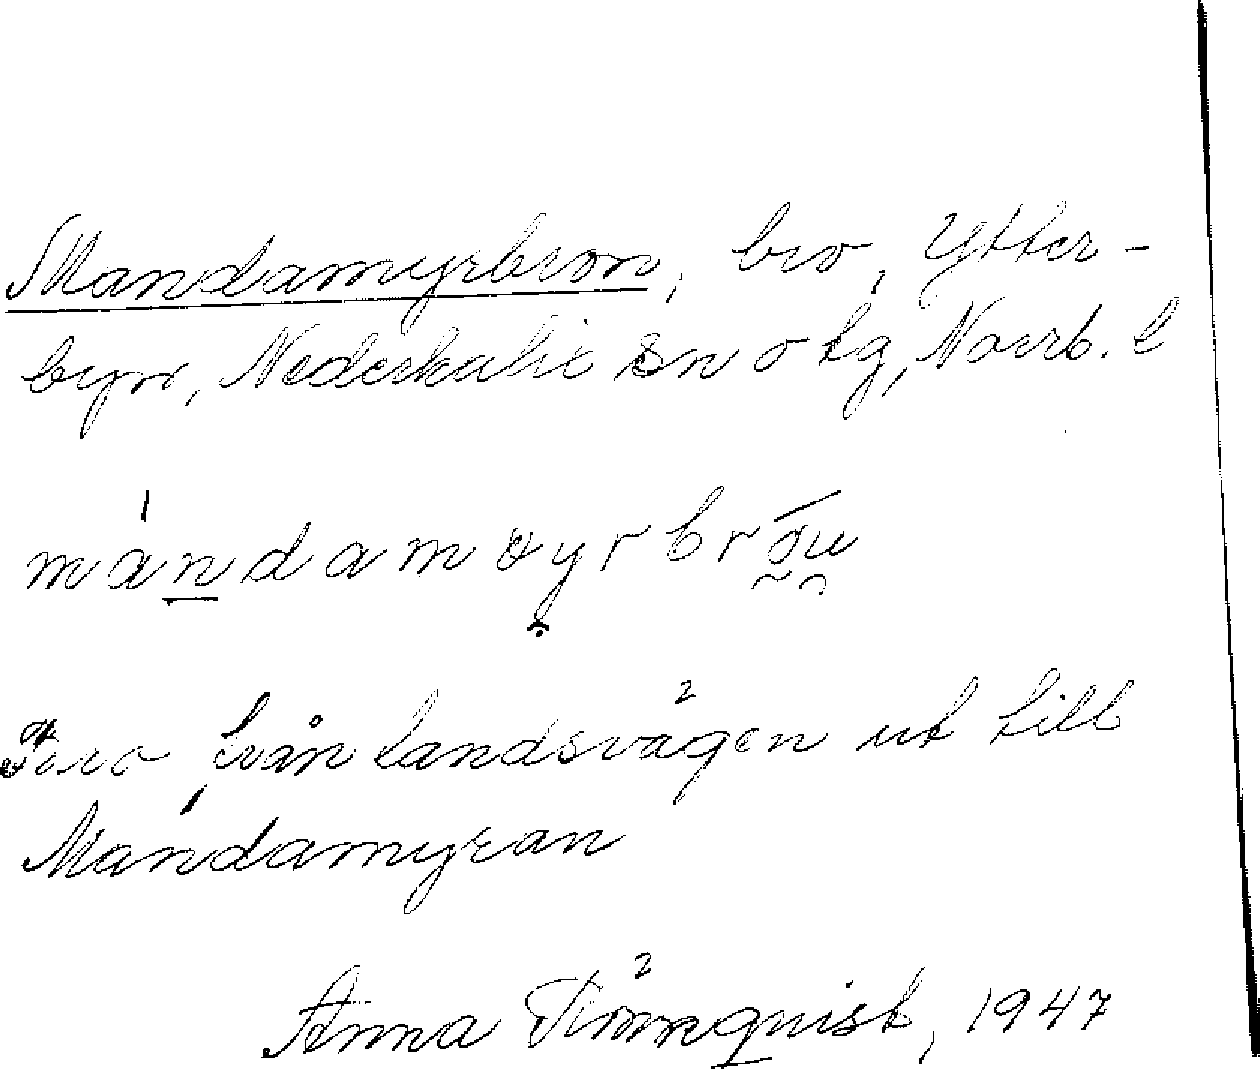 Mandamyrbron, bro, Ytter-
byn, Nederkalix sn o tg, Norrb. l
mandamøyrbrōu
Bro från landsvägen ut till
Mandamyran
Anna Rönnquist, 1947